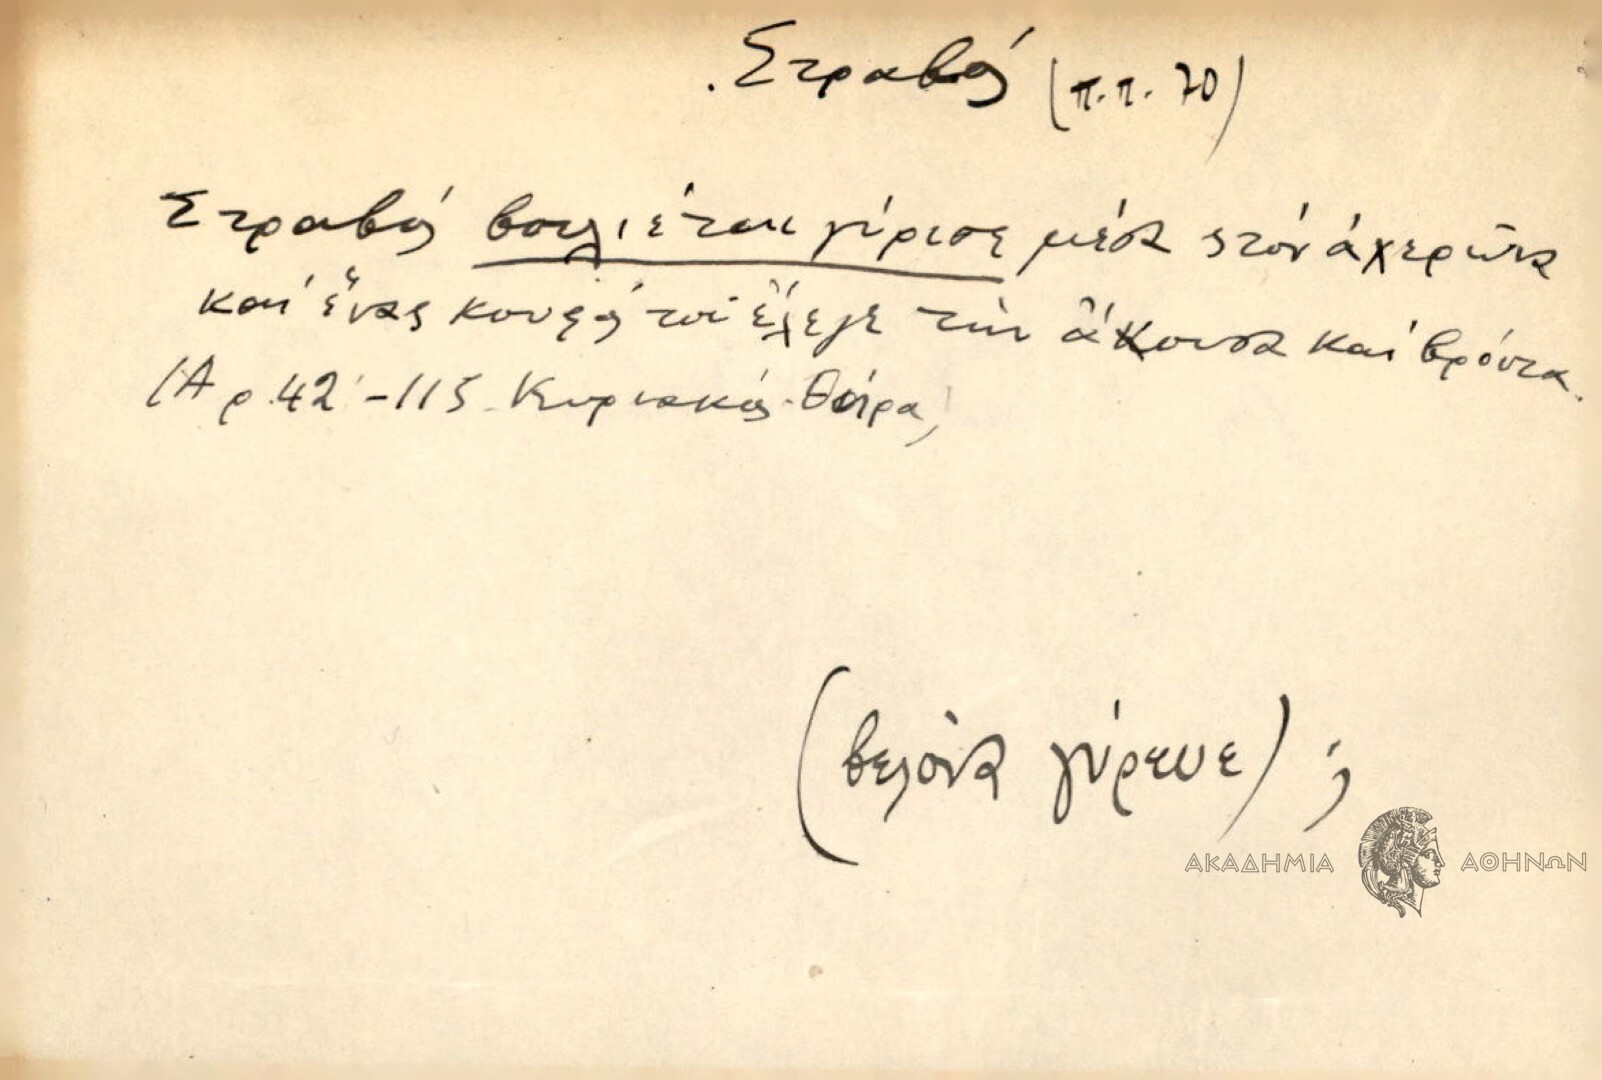 Στραβός (π.π. 70)
Στραβός βουλιέται γύρισε μέσα στόν ἀχερῶνα
καί ἕνας κουφός τοῦ ἔλεγε τήν ἄκουσα καί βρόντα.
(Αρ. 42 - 115 Κυριακός Θήρα)
(βελόνα γύρευε) ;
ΑΚΑΔΗΜΙΑ ΑΘΗΝΩΝ